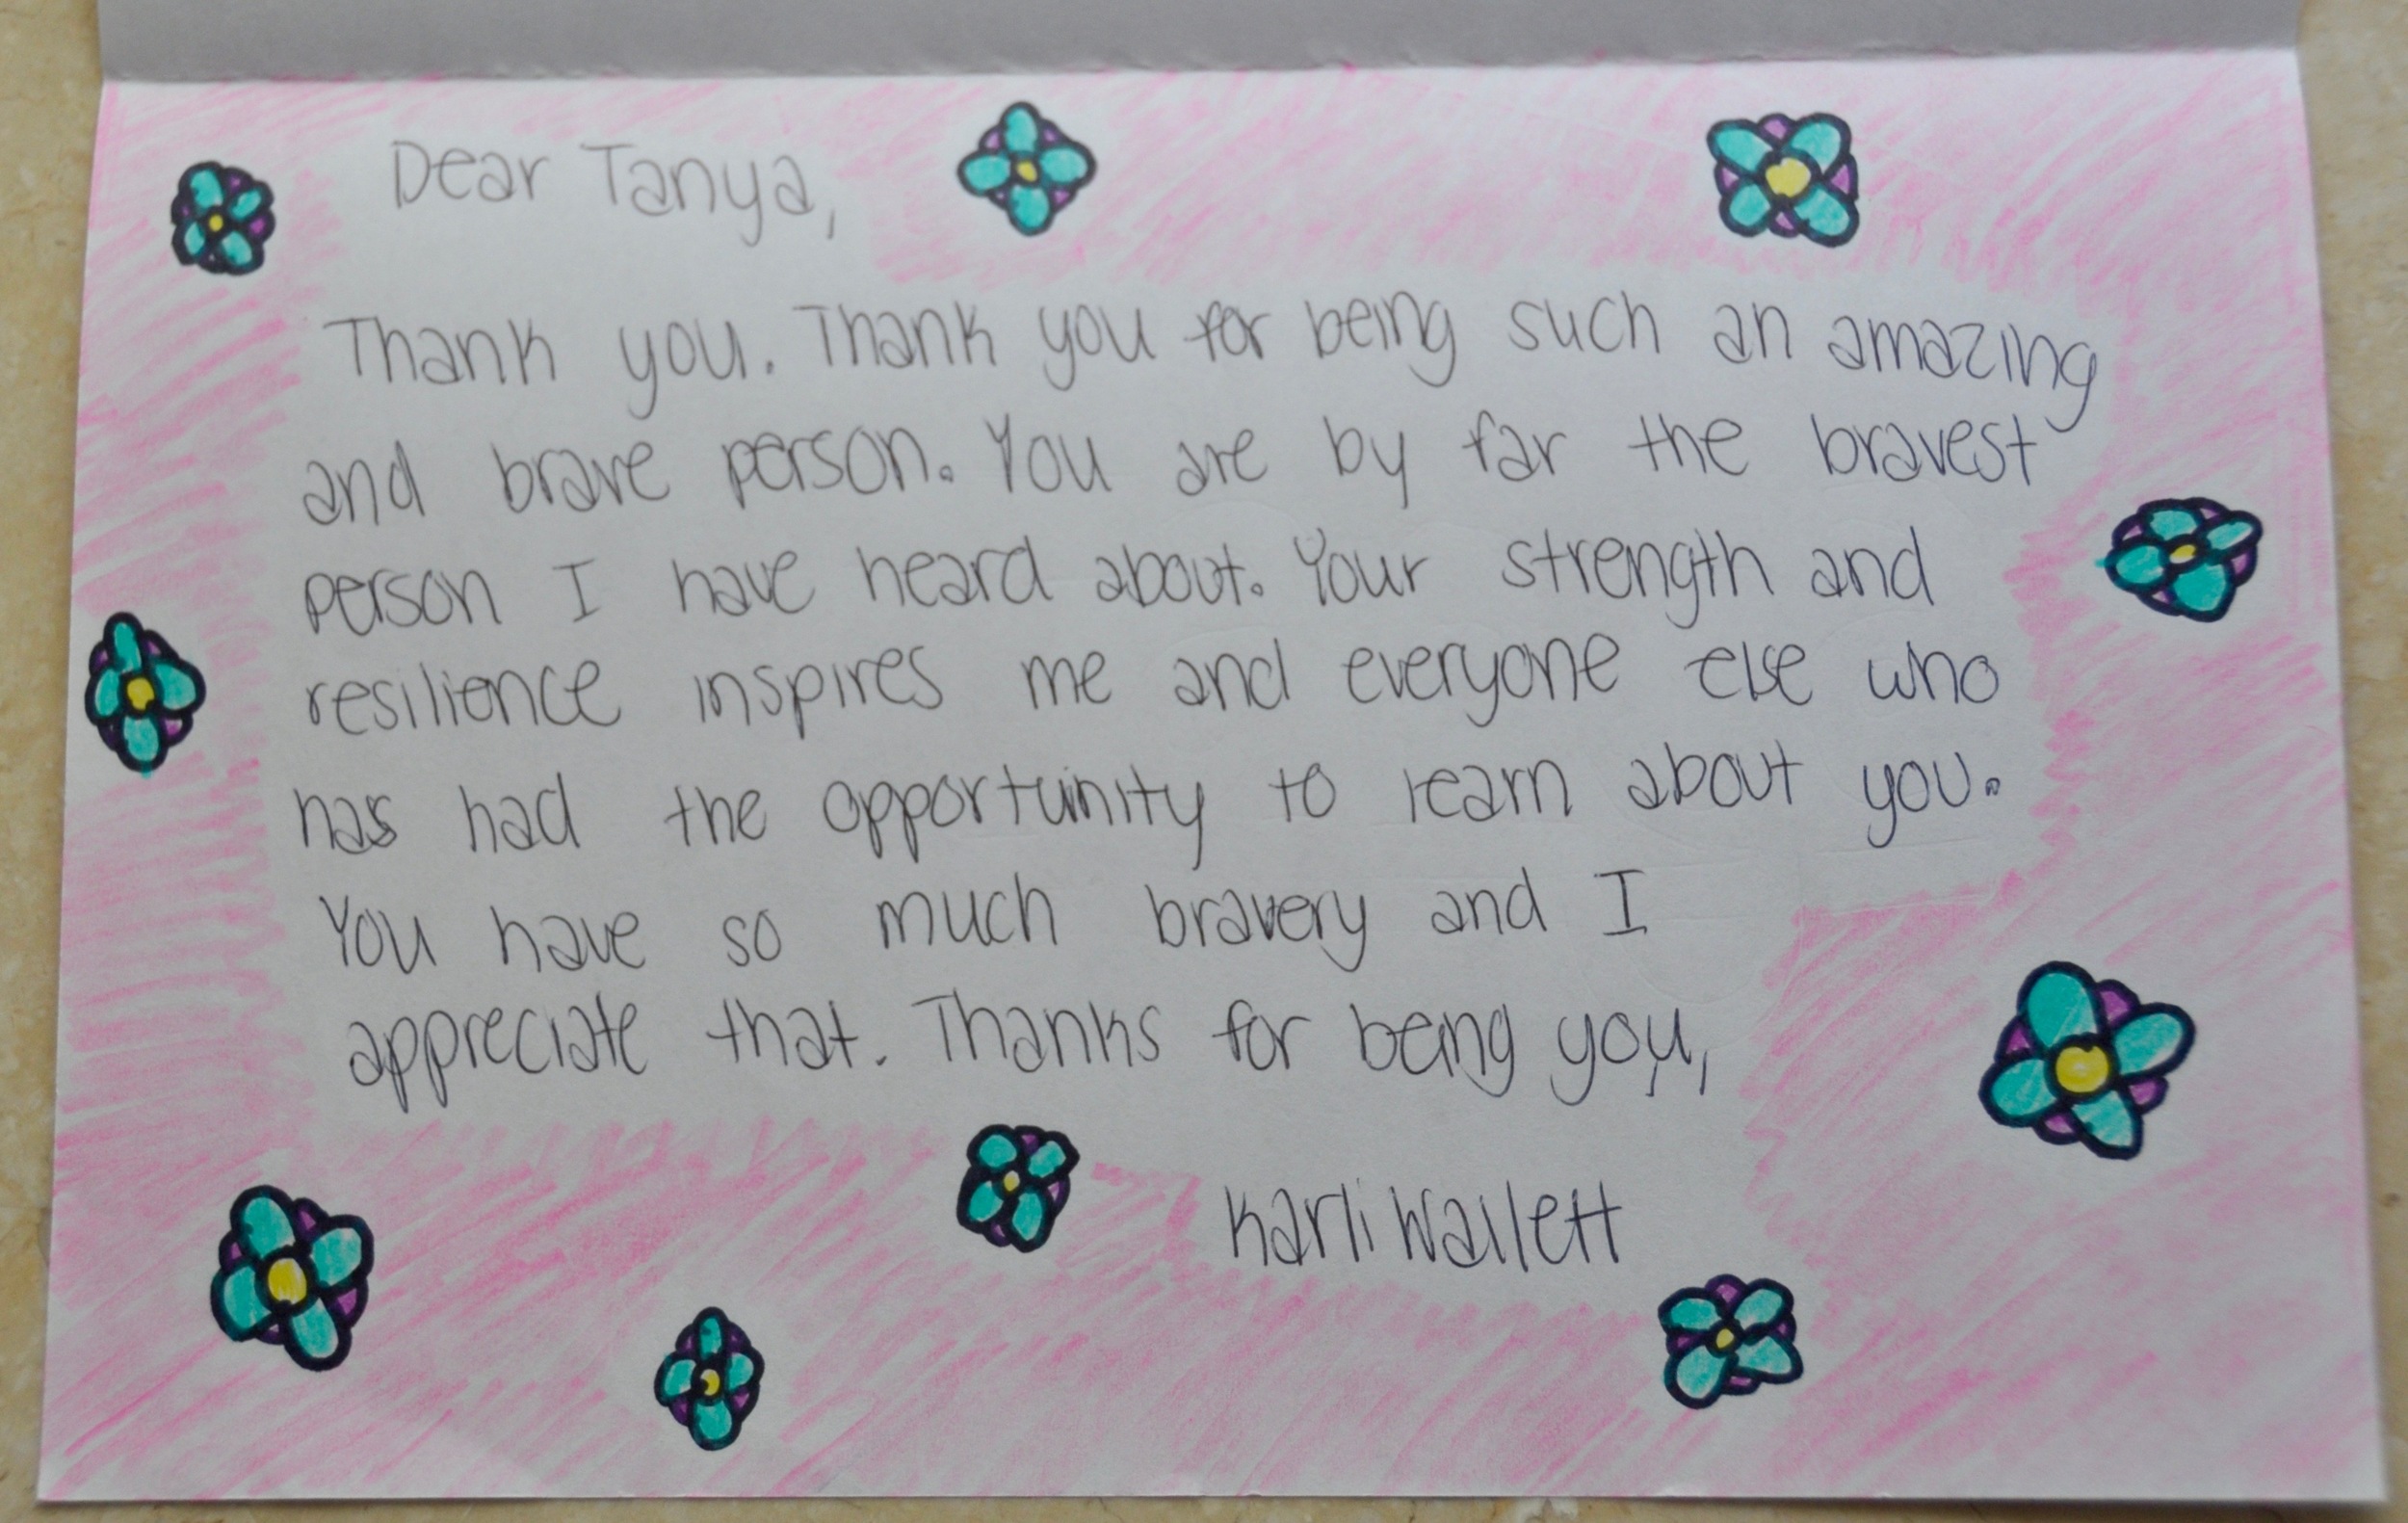 Dear Tanya,
Thank you. Thank you for being such an amazing
and brave person. You are by far the bravest
person I have heard about. Your strength and
resilience inspires me and everyone else who
has had the opportunity to learn about you.
You have so much bravery and I
appreciate that. Thanks for being you,
Karli Wallett